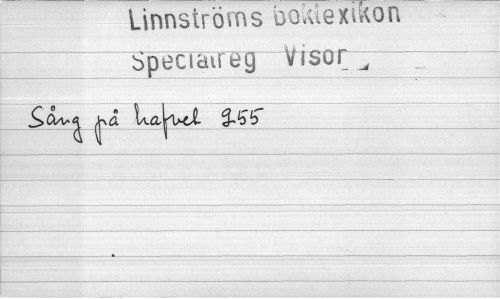 Linnströms boklexikon
Specialreg Visor
Sång på hafvet 255